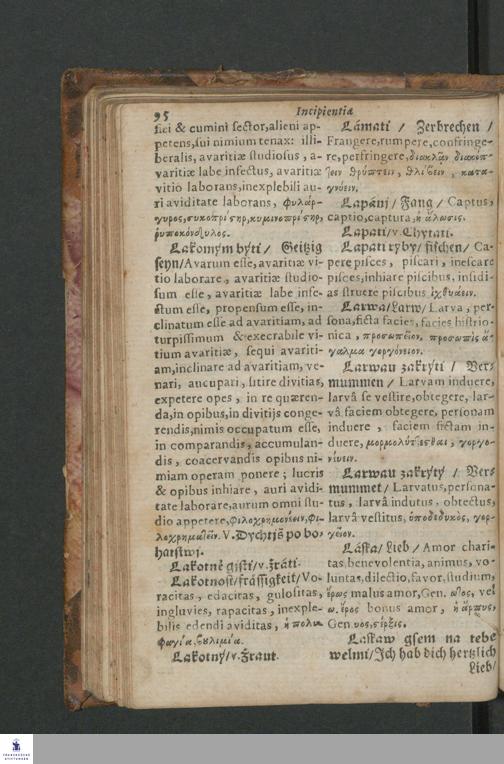 95
Incipientia
fici & cumini sector, alieni ap-
petens, sui nimium tenax: illi-
beralis, avaritiæ studiosus, a-
varitiæ labe infectus, avaritiæ
vitio laborans, inexplebili au-
ri aviditate laborans, φιλάρ-
γυρος, συκοπρίςηρ, κυμινοπρίςηρ,
ῥυποκόνδυλος.
Lakomým byti / Geitzig
seyn / Avarum esse, avaritiæ vi-
tio laborare, avaritiæ studio-
sum esse, avaritiæ labe infe-
ctum esse, propensum esse, in-
clinatum esse ad avaritiam, ad
turpissimum & execrabile vi-
tium avaritiæ, sequi avariti-
am, inclinare ad avaritiam, ve-
nari, aucupari, sitire divitias,
expetere opes, in re quæren-
da, in opibus, in divitijs conge-
rendis, nimis occupatum esse,
in comparandis, accumulan-
dis, coacervandis opibus ni-
miam operam ponere; lucris
& opibus inhiare, auri avidi-
tate laborare, aurum omni stu-
dio appetere, φιλοχρημονεῖν, φι-
λοχρηματεῖν. V. Dychtiš po bo-
hatstwj.
Lakotně gisti / v. žráti.
Lakotnost / frässigkeit / Vo-
racitas, edacitas, gulositas,
ingluvies, rapacitas, inexple-
bilis edendi aviditas, ἡ πολυ-
φαγία, βυλιμία.
Lakotný / v. Žraut.
Lámati / Zerbrechen /
Frangere, rumpere, confringe-
re, perfringere, διακλᾷν διακόπ-
τειν θρύπτειν, θλίβειν, κατα-
γνύειν.
Lapánj / Fang / Captus,
captio, captura, ἡ ἅλωσις.
Lapati / v. Chytati.
Lapati ryby / fischen / Ca-
pere pisces, piscari, inescare
pisces, inhiare piscibus, insidi-
as struere piscibus ἰχθυάειν.
Larwa / Larw / Larva, per-
sona, ficta facies, facies histrio-
nica, προσωπεῖον, προσωπὶς ἄ-
γαλμα γοργόνειον.
Larwau zakrýti / Ver-
mummen / Larvam induere,
larvâ se vestire, obtegere, lar-
vâ faciem obtegere, personam
induere, faciem fictam in-
duere, μορμολύττεσθαι, γοργο-
νύειν.
Larwau zakrytý / Ver-
mummet / Larvatus, persona-
tus, larvâ indutus, obtectus,
larvâ vestitus, ὑποδεδυκὸς, γορ-
γεῖον.
Láska / Lieb / Amor chari-
tas, benevolentia, animus, vo-
luntas, dilectio, favor, studium,
ἔρως malus amor, Gen. ωτος, vel
ω. ἔρος bonus amor, ἡ ἄρπυς
Gen. υος, σέρξις.
Láskaw gsem na tebe
welmi / Jch hab dich hertzlich
Lieb /
FRANCKESCHE
STIFTUNGEN